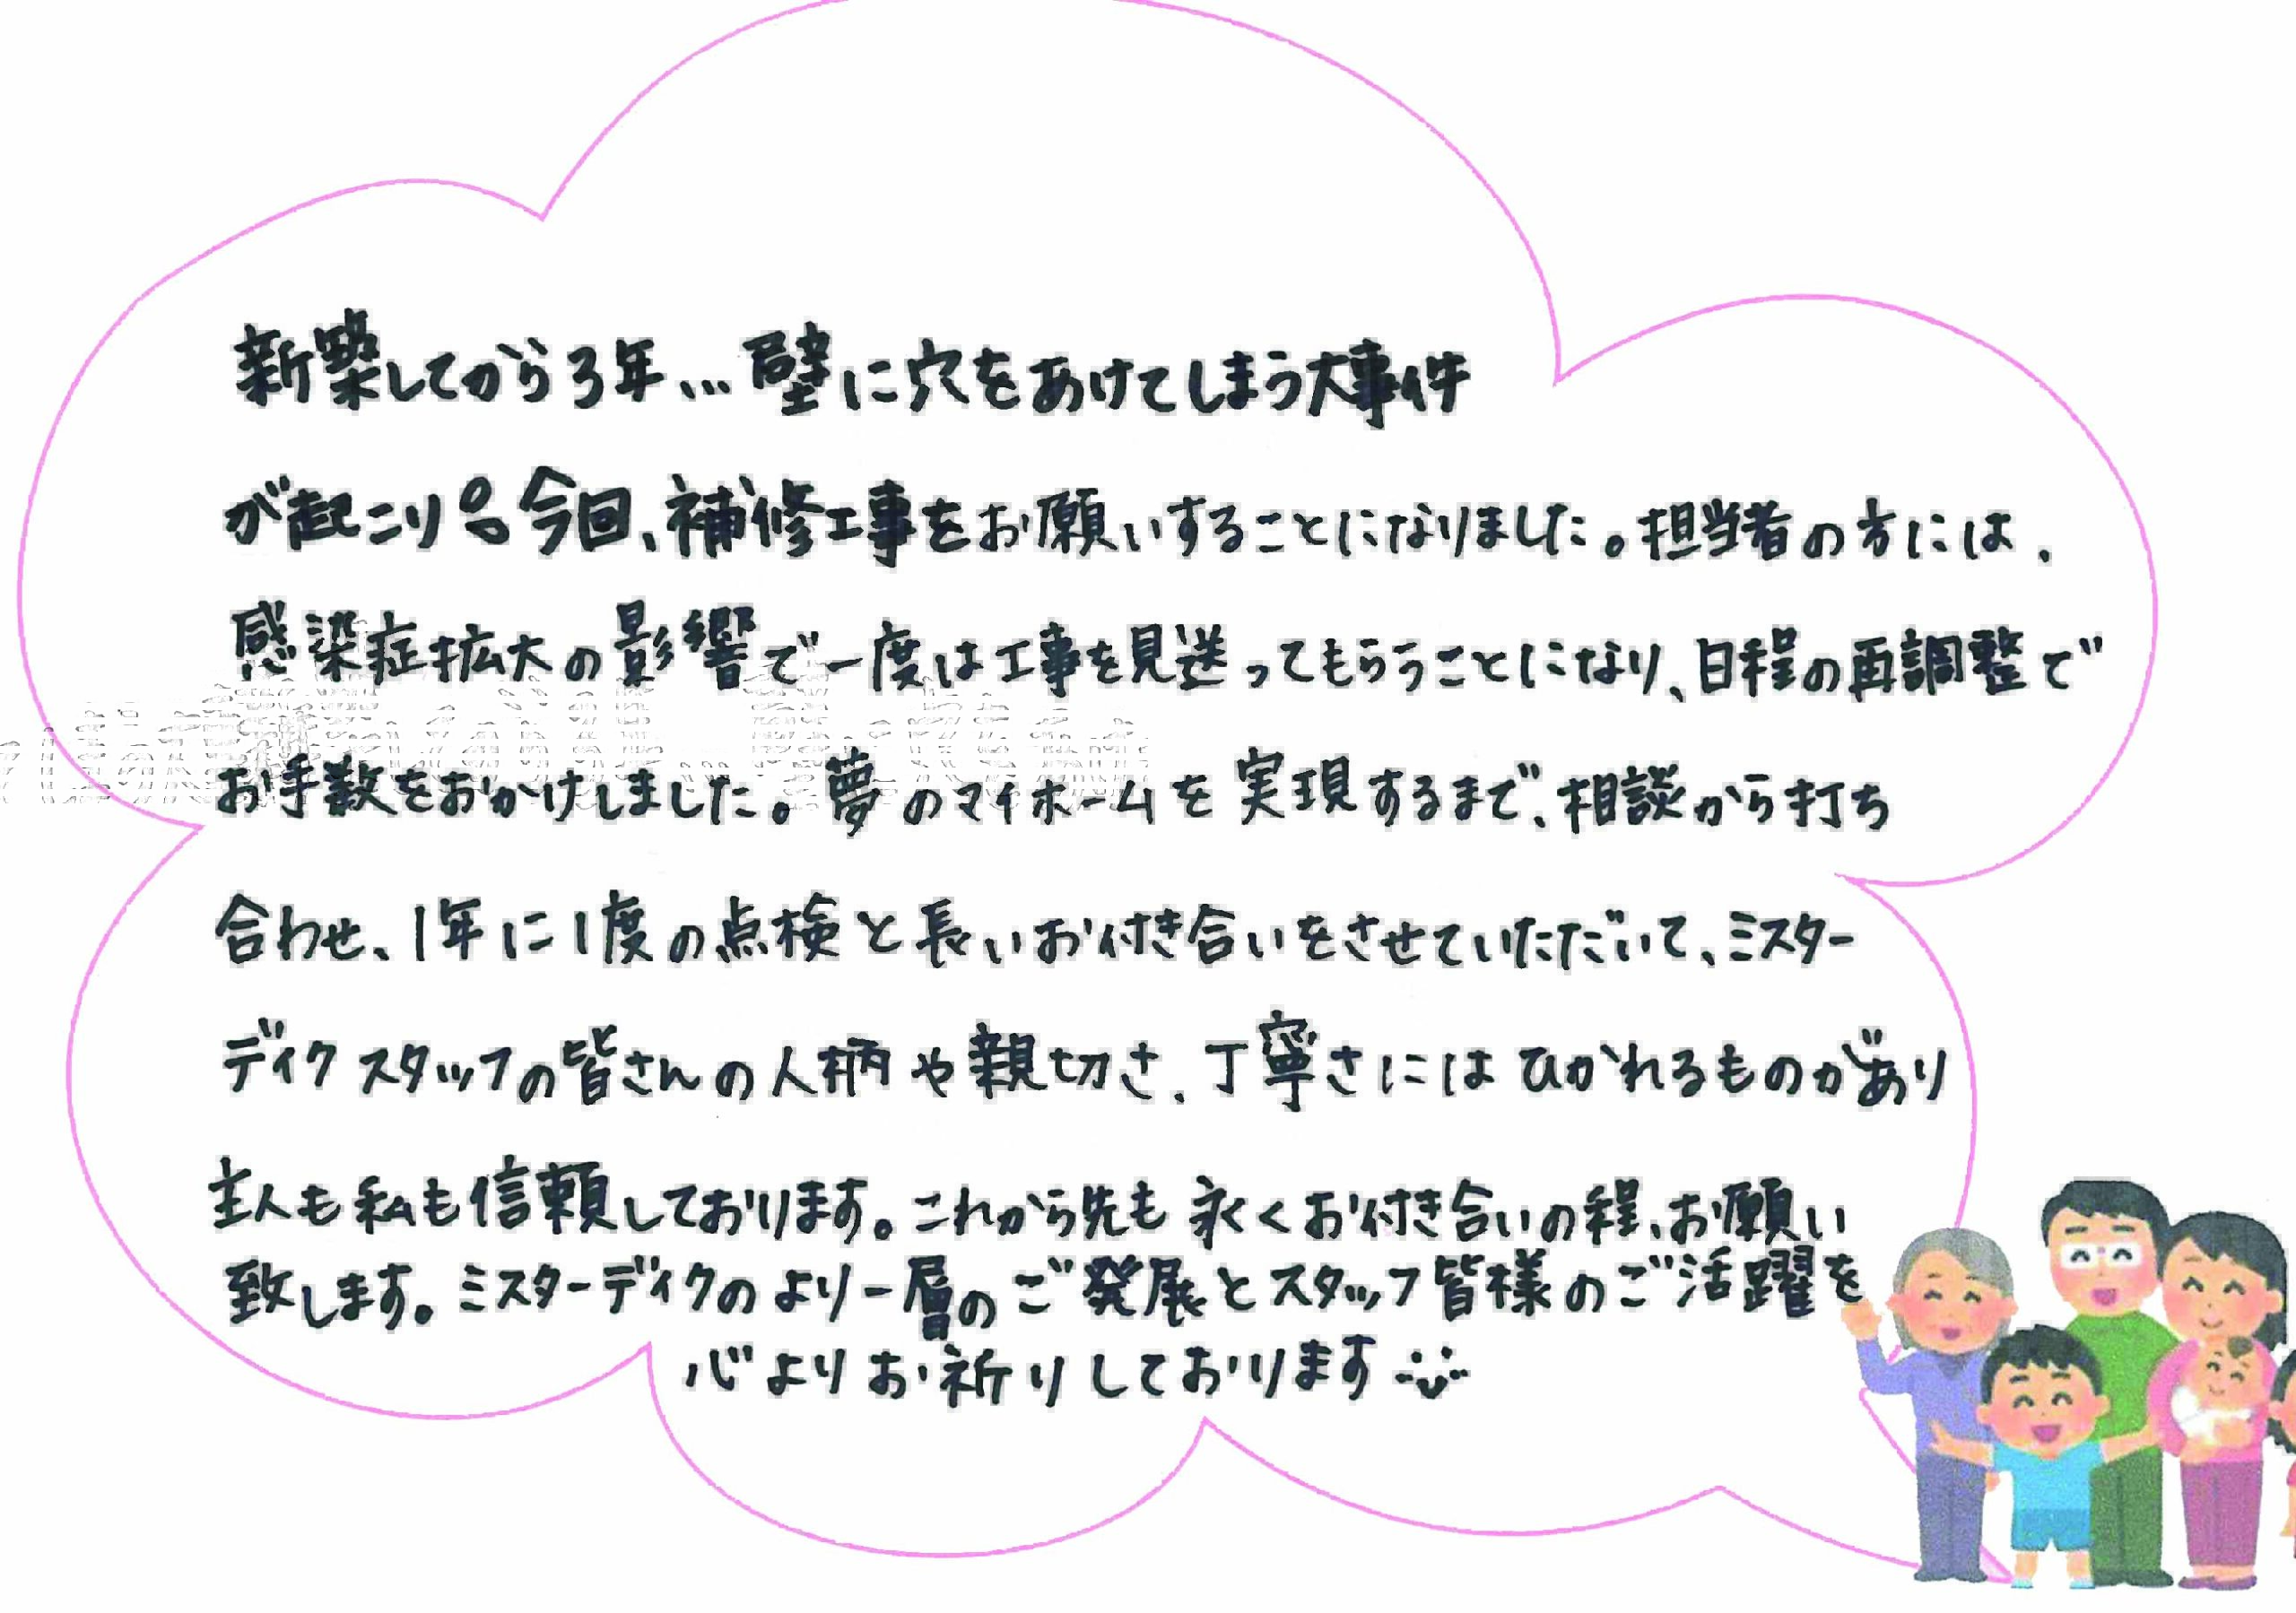 新築してから3年…壁に穴をあけてしまう大事件
が起こり 今回、補修工事をお願いすることになりました。担当者の方には、
感染症拡大の影響で一度は工事を見送ってもらうことになり、日程の再調整で
お手数をおかけしました。夢のマイホームを実現するまで、相談から打ち
合わせ、1年に1度の点検と長いお付き合いをさせていただいて、ミスター
デイク スタッフの皆さんの人柄や親切さ、丁寧さにはひかれるものがあり
主人も私も信頼しております。これから先も永くお付き合いの程、お願い
致します。ミスターデイクのより一層のご発展とスタッフ皆様のご活躍を
心よりお祈りしております